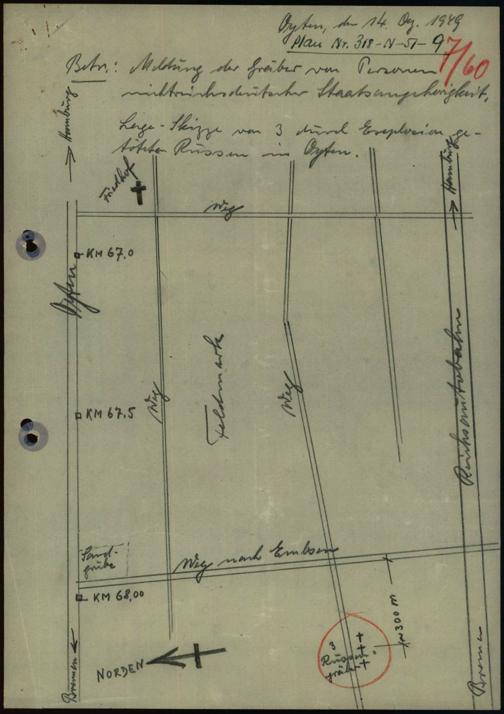 Oyten, den 14. Dez. 1949
Plan Nr. 318-N-51-9
7/60
Betr.: Meldung der Gräber von Personen
nichtreichsdeutscher Staatsangehörigkeit.
Lage-Skizze von 3 durch Explosion ge-
töteten Russen in Oyten.
Hamburg
Friedhof
Hamburg
Weg
KM 67.0
Oyten
Weg
Feldmark
Weg
Reichsautobahn
KM 67.5
Sand-
grube
Weg nach Embsen
KM 68,00
300 m
3
Russen
gräber
NORDEN
Bremen
Bremen